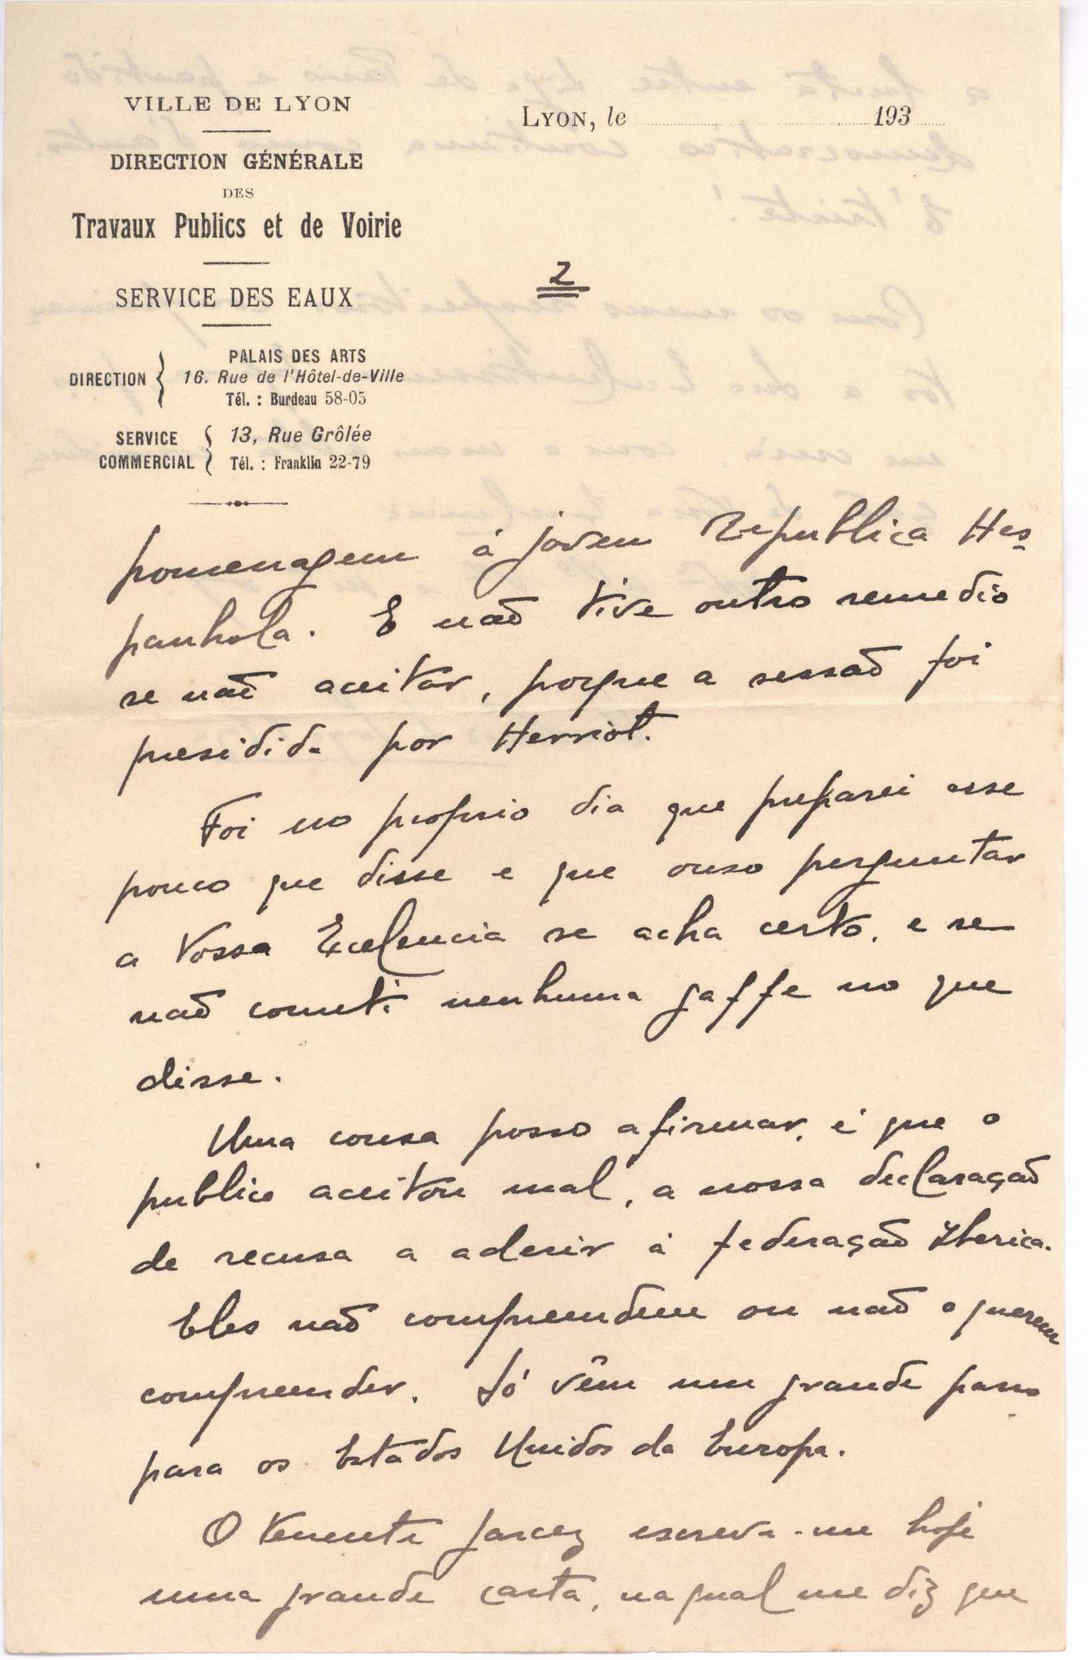 VILLE DE LYON
DIRECTION GÉNÉRALE
DES
Travaux Publics et de Voirie
SERVICE DES EAUX
DIRECTION { PALAIS DES ARTS
16. Rue de l'Hôtel-de-Ville
Tél. : Burdeau 58-05
SERVICE COMMERCIAL { 13, Rue Grôlée
Tél. : Franklin 22-79
LYON, le 193
2
homenagem á joven Republica Hes-
panhola. E não tive outro remedio
se não aceitar, porque a sessão foi
presidida por Herriot.
Foi no proprio dia que preparei esse
pouco que disse e que ouso perguntar
a Vossa Excelencia se acha certo, e se
não cometi nenhuma gaffe no que
disse.
Uma cousa posso afirmar, é que o
publico aceitou mal, a nossa declaração
de recusa a aderir á federação Iberica.
Eles não compreendem ou não o querem
compreender. Só vêm um grande passo
para os Estados Unidos da Europa.
O Tenente Garcez escreve-me hoje
uma grande carta, na qual me diz que